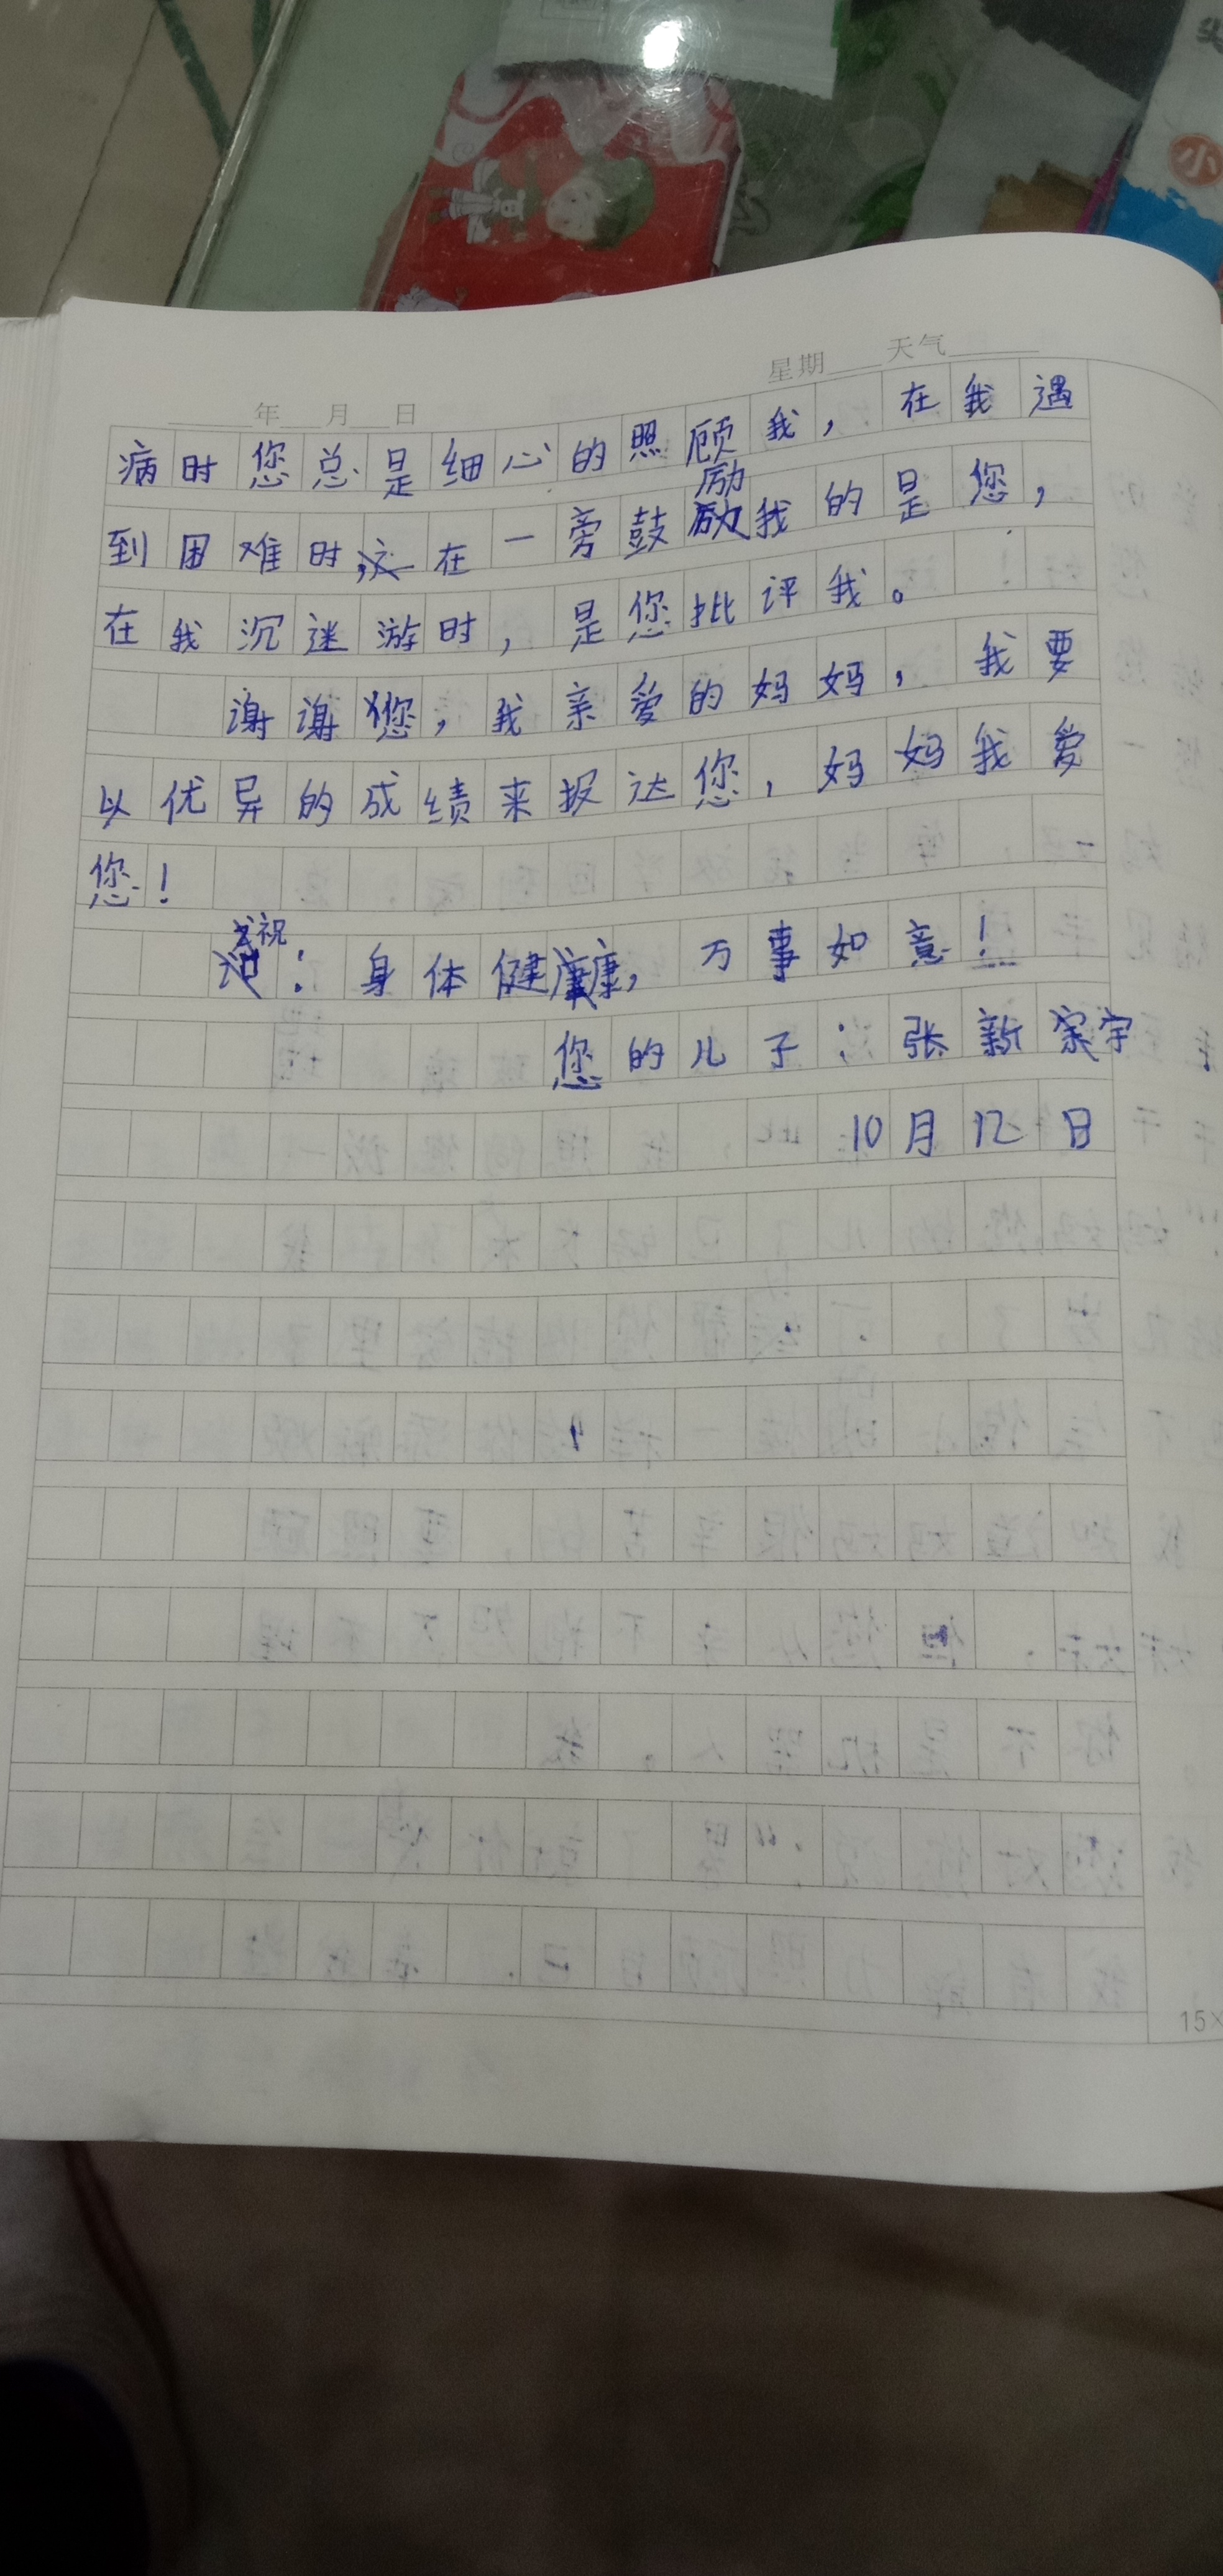 小
年 月 日 星期 天气
病时您总是细心的照顾我，在我遇
到困难时在一旁鼓励我的是您，
在我沉迷游时，是您批评我。
谢谢您，我亲爱的妈妈，我要
以优异的成绩来报达您，妈妈我爱
您！
祝：身体健康，万事如意！
您的儿子：张新宇
10月12日
15×